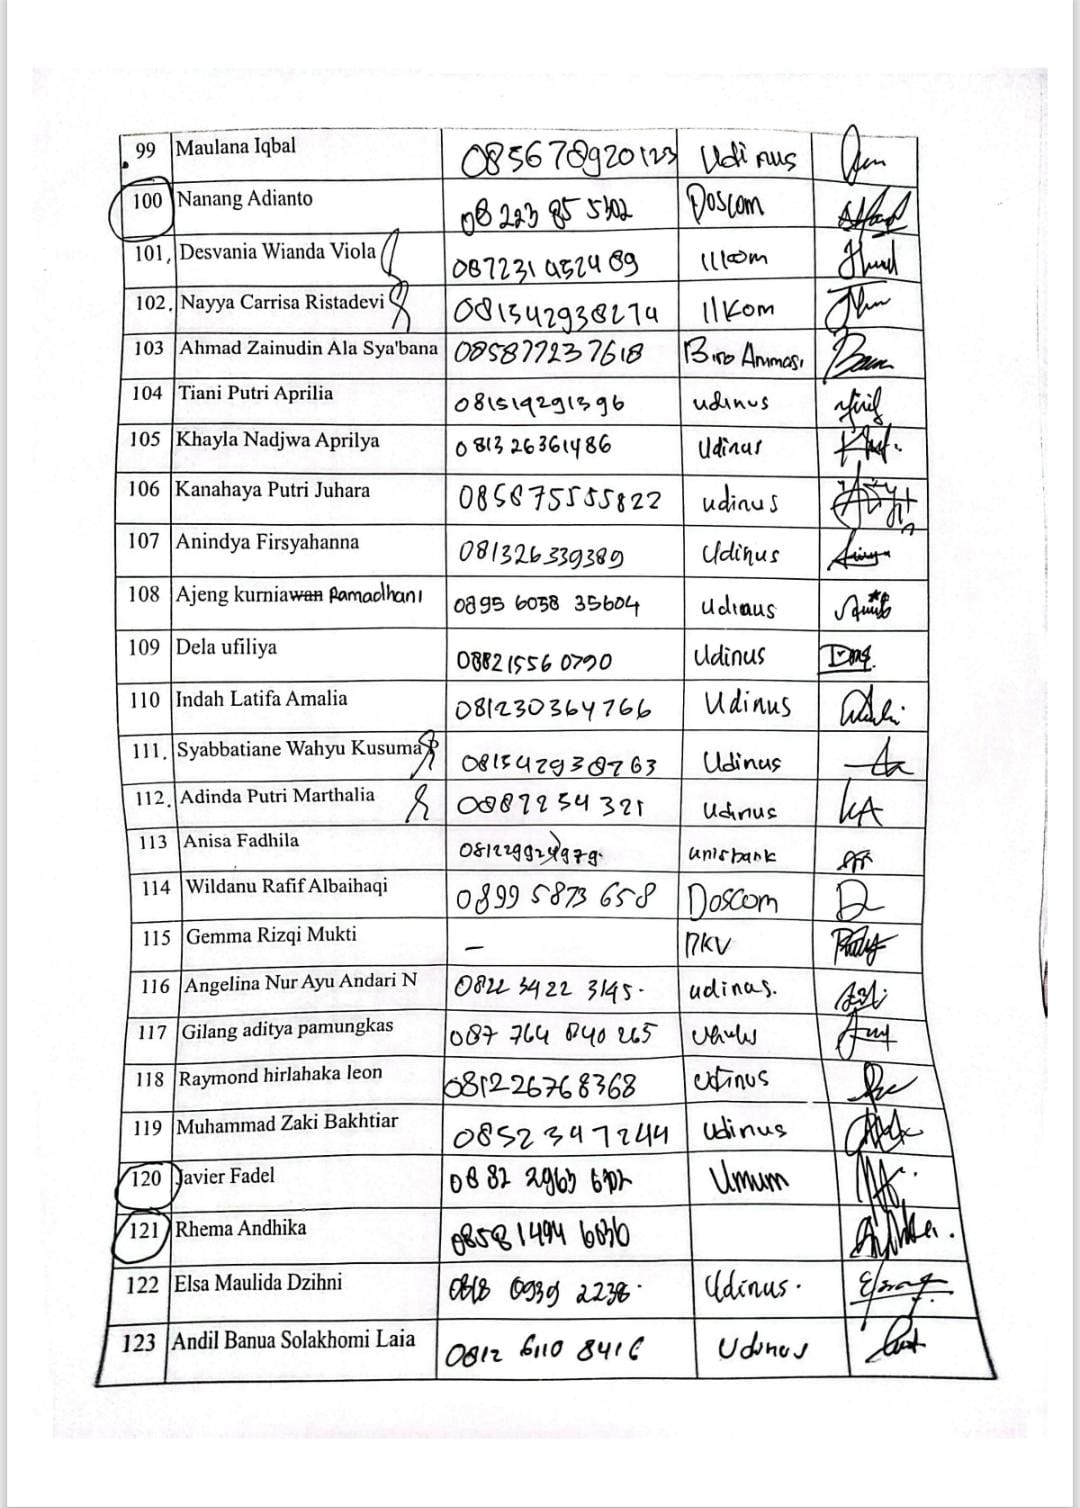 99 Maulana Iqbal 085678920123 Udinus
100 Nanang Adianto Doscom
101, Desvania Wianda Viola
102, Nayya Carrisa Ristadevi 081542938274 Ilkom
103 Ahmad Zainudin Ala Sya'bana 085877237618 Biro
104 Tiani Putri Aprilia 081519291396 udinus
105 Khayla Nadjwa Aprilya 0813 26361486 Udinus
106 Kanahaya Putri Juhara 085875555822 udinus
107 Anindya Firsyahanna 081326339389 Udinus
108 Ajeng kurniawan Ramadhani 0895 6038 35604 Udinus
109 Dela ufiliya 08821556 0790 Udinus
110 Indah Latifa Amalia 081230364766 Udinus
111. Syabbatiane Wahyu Kusuma Udinus
112. Adinda Putri Marthalia Udinus
113 Anisa Fadhila unisbank
114 Wildanu Rafif Albaihaqi 0899 5873 658 Doscom
115 Gemma Rizqi Mukti – DKV
116 Angelina Nur Ayu Andari N 0822 3422 3145. udinus.
117 Gilang aditya pamungkas 087 764 840 265
118 Raymond hirlahaka leon 081226768368 Udinus
119 Muhammad Zaki Bakhtiar 08523497244 Udinus
120 Javier Fadel Umum
121 Rhema Andhika
122 Elsa Maulida Dzihni Udinus.
123 Andil Banua Solakhomi Laia 0812 6110 8416 Udinus